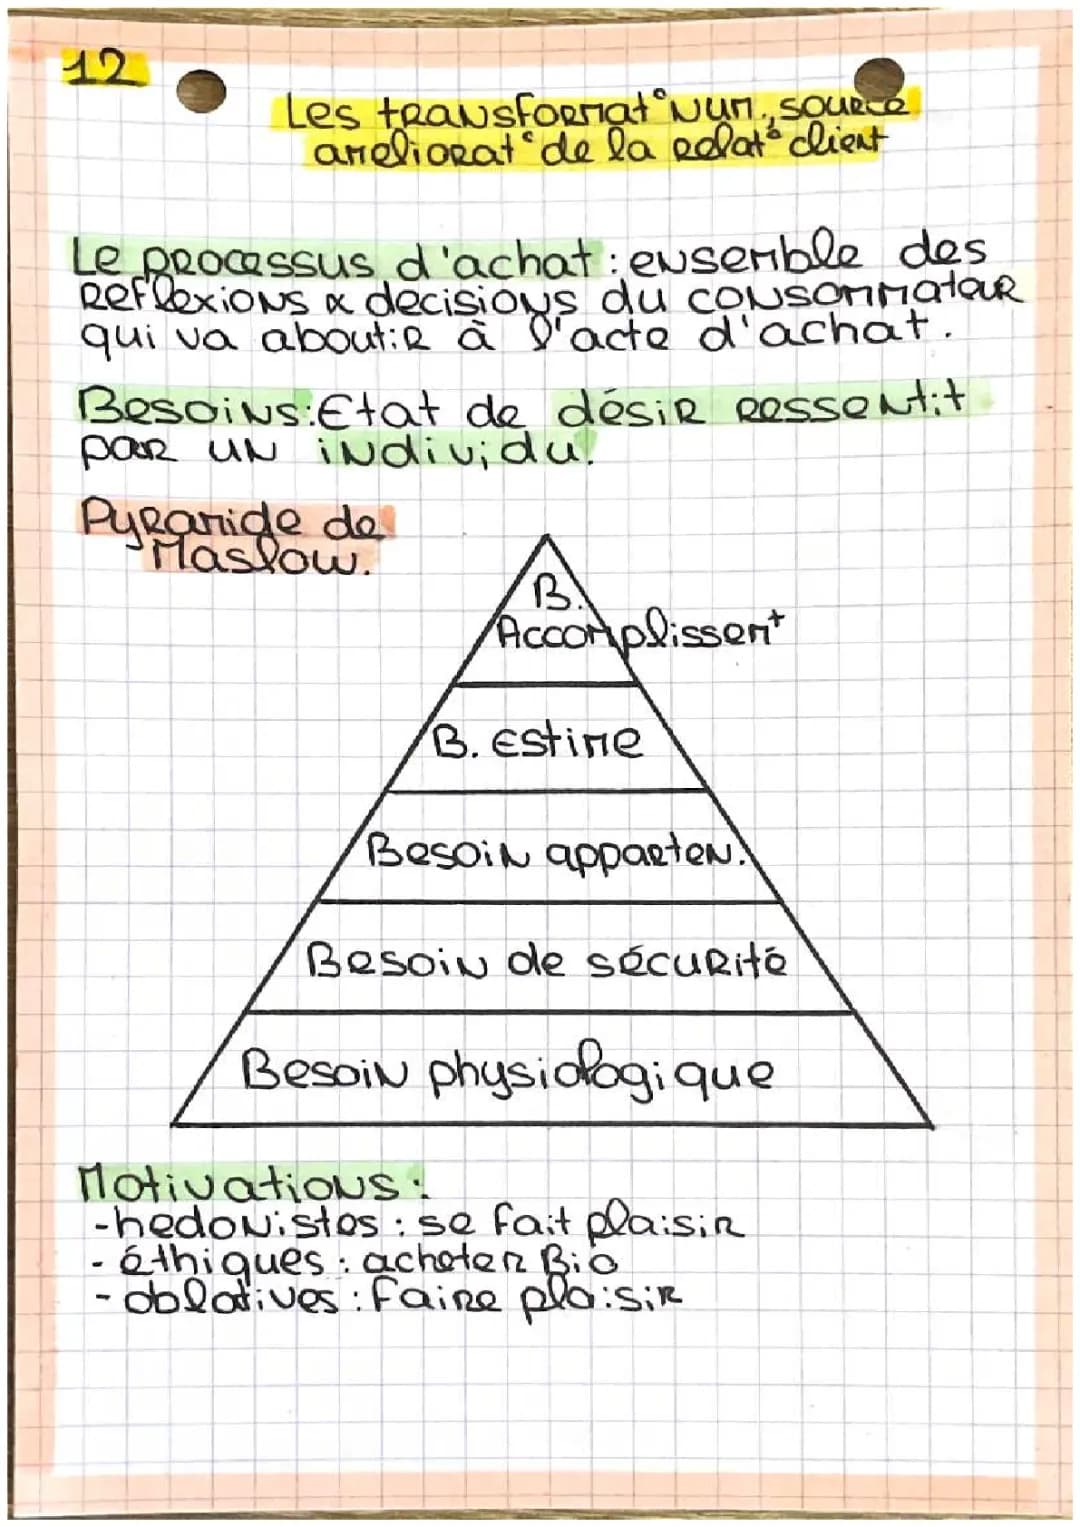 12
Les transformat° Num., source
ameliorat° de la relat° client
Le processus d'achat : ensemble des
Reflexions & decisions du consommateur
qui va aboutir à l'acte d'achat.
Besoins : Etat de désir ressentit
par un individu.
Pyramide de
Maslow.
B.
Accomplissem⁺
B. Estime
Besoin apparten.
Besoin de sécurité
Besoin physiologique
Motivations :
- hedonistes : se fait plaisir
- éthiques : acheter Bio
- oblatives : faire plaisir